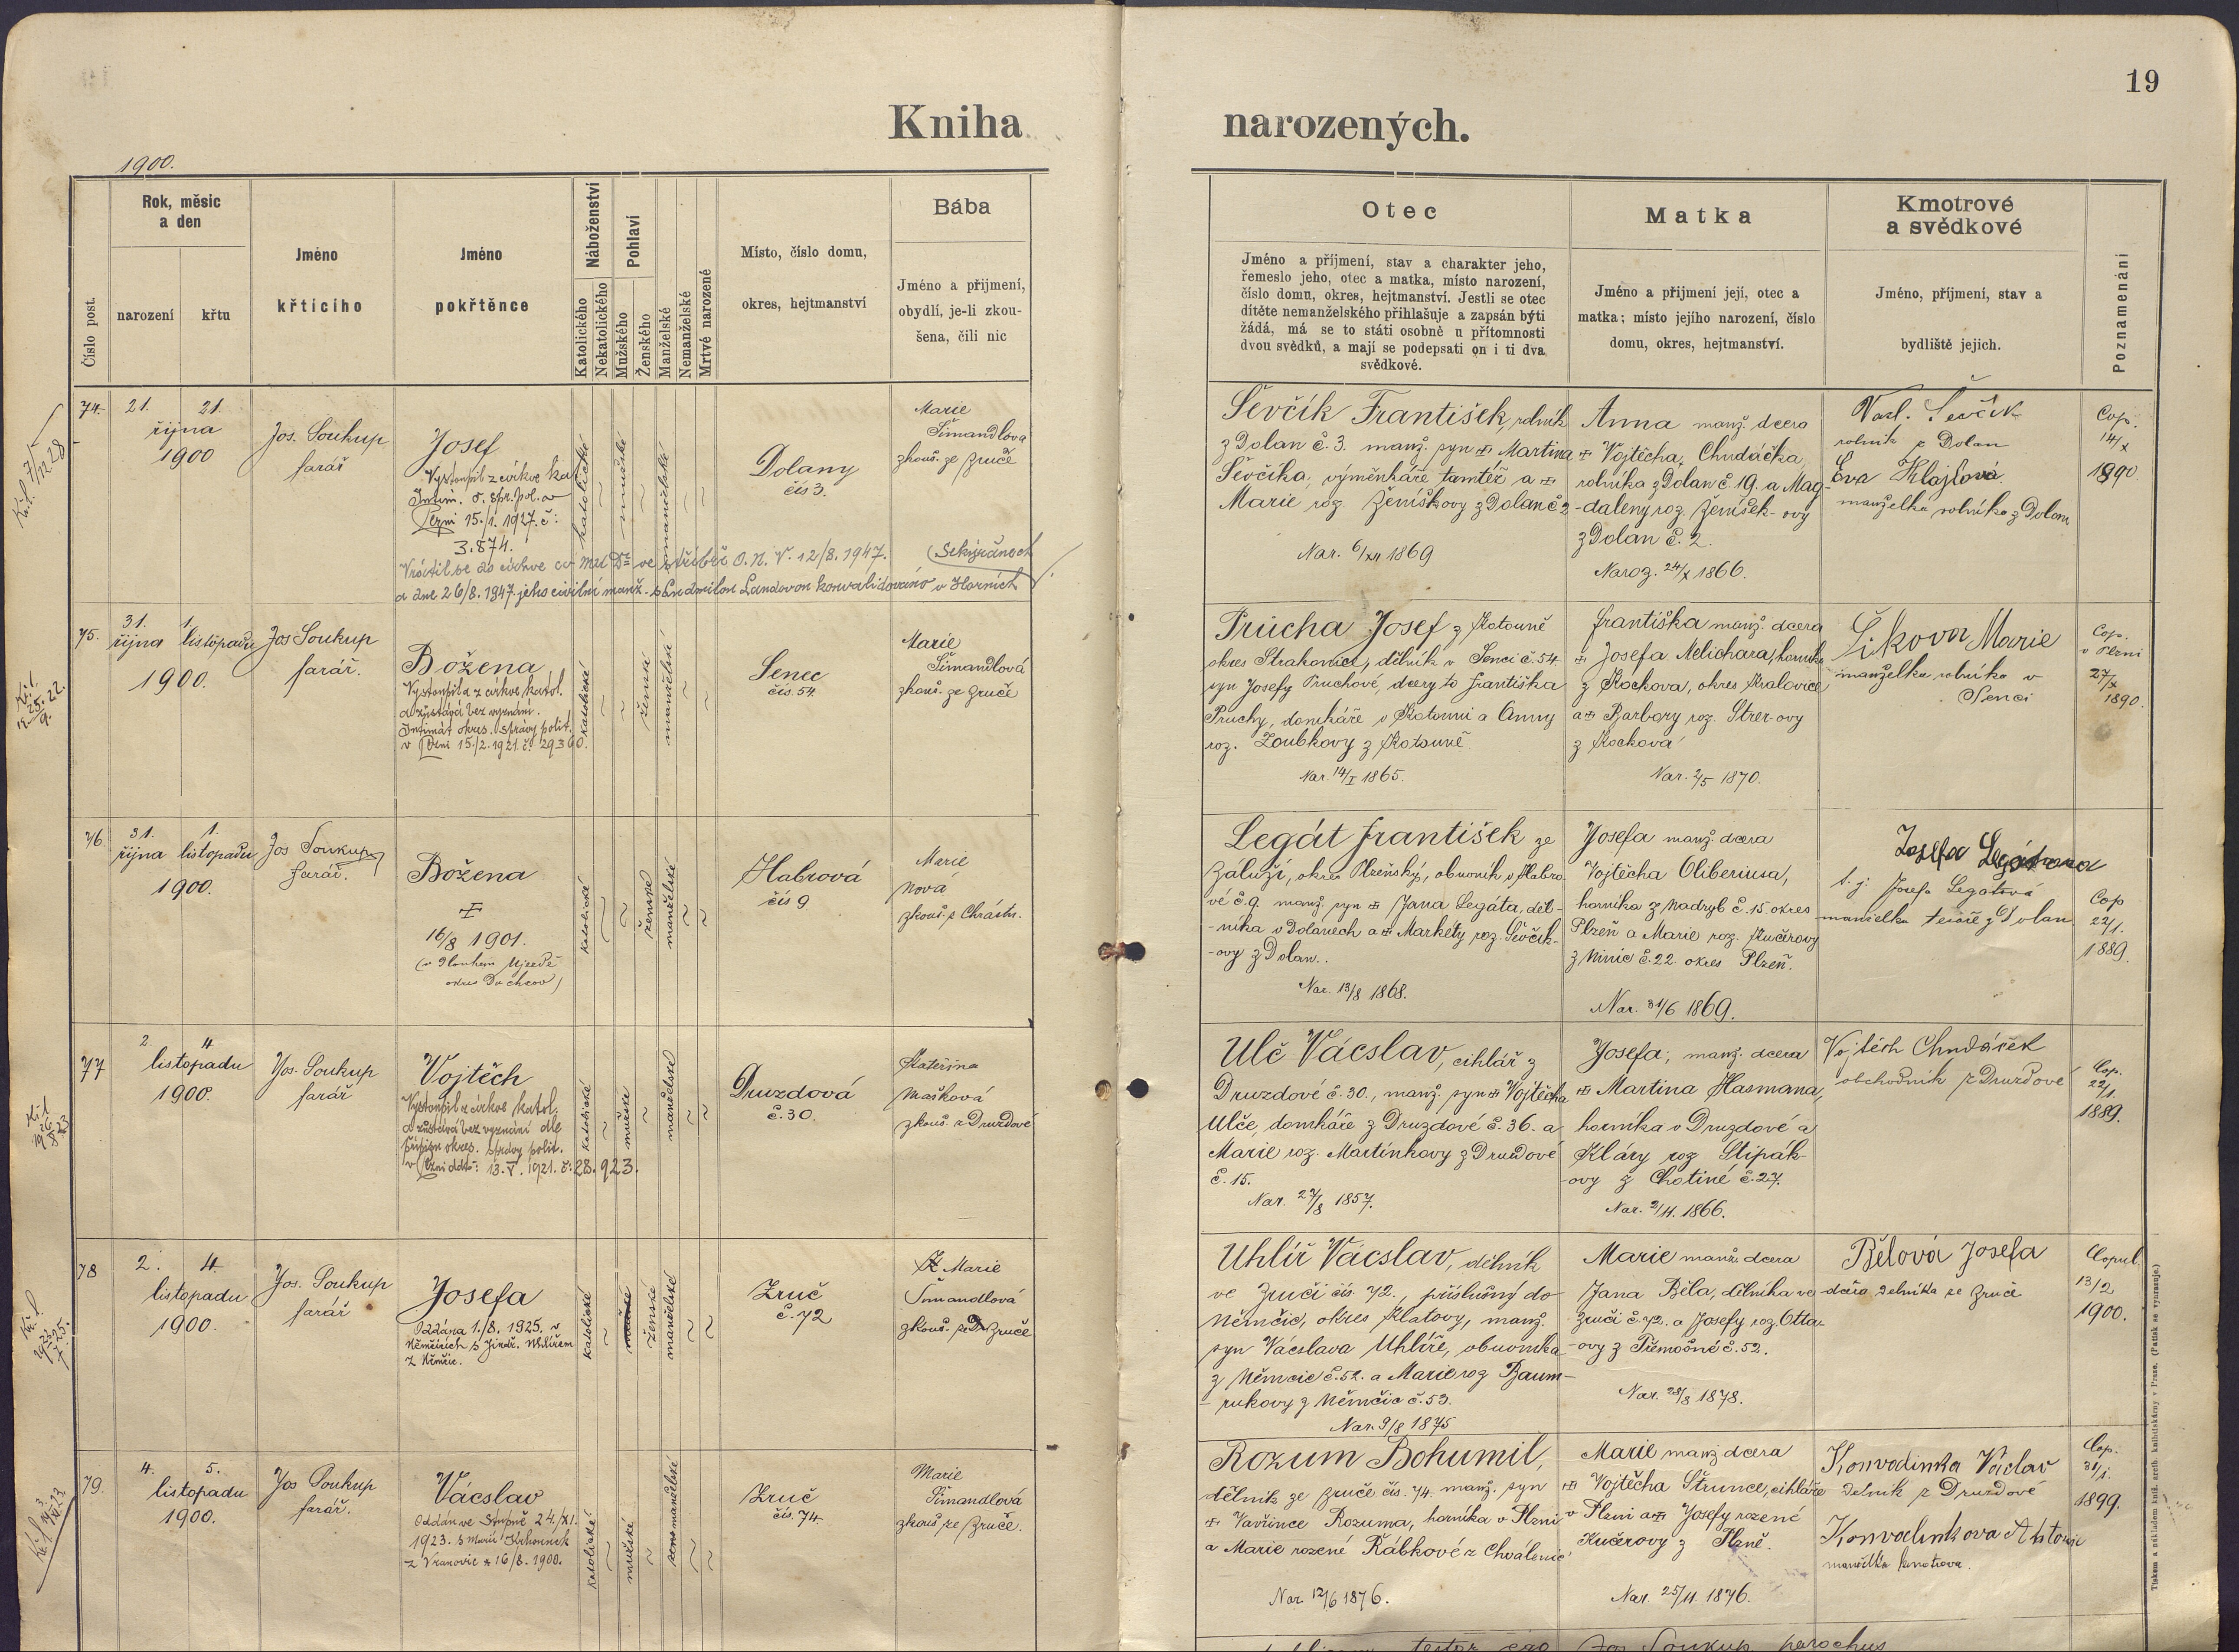 19
Kniha narozených.
1900.
Číslo post.
Rok, měsíc
a den
narození
křtu
Jméno
křticího
Jméno
pokřtěnce
Náboženství
Katolického
Nekatolického
Pohlaví
Mužského
Ženského
Manželské
Nemanželské
Mrtvé narozené
Místo, číslo domu,
okres, hejtmanství
Bába
Jméno a přijmení,
obydlí, je-li zkou-
šena, čili nic
Otec
Jméno a příjmení, stav a charakter jeho,
řemeslo jeho, otec a matka, místo narození,
číslo domu, okres, hejtmanství. Jestli se otec
dítěte nemanželského přihlašuje a zapsán býti
žádá, má se to státi osobně u přítomnosti
dvou svědků, a mají se podepsati on i ti dva
svědkové.
Matka
Jméno a přijmení její, otec a
matka; místo jejího narození, číslo
domu, okres, hejtmanství.
Kmotrové
a svědkové
Jméno, příjmení, stav a
bydliště jejich.
Poznamenání
74.
21. 21.
října
1900
Jos. Soukup
farář
Josef
Vystoupil z církve kat.
Intim. o. spr. pol. v
Plzni 15./1. 1927. č:
3.874.
katolické
mužské
manželské
Dolany
čís 3.
Marie
Šimandlova
zkouš. ze Zruče
Vrátil se do církve
ve Stříbře O. N. V. 12/8. 1947.
a dne 26/8. 1947 jeho civilní manž. s Ludmilou Landovou konvalidováno v Horních
Sekyřanech
Ševčík František, rolník
z Dolan č. 3. manž. syn Martina
Ševčíka, výměnkáře tamtéž a
Marie roz. Ženíškovy z Dolan č 2
Nar. 6/XII 1869
Anna manž. dcera
Vojtěcha Chudáčka,
rolníka z Dolan č. 19. a Mag-
-daleny roz. Ženíšek-ovy
z Dolan č. 2.
Naroz. 24/X 1866.
Vacl. Ševčík
rolník z Dolan
Eva Klajlová
manželka rolníka z Dolan
Cop.
14/X
1890
75.
31. 1.
října listopadu
1900.
Jos Soukup
farář.
Božena
Vystoupila z církve katol.
a zůstává bez vyznání.
Intimát okres. správy polit.
v Plzni 15./2. 1921. č. 29360.
katolické
ženské
manželské
Senec
čís. 54.
Marie
Šimandlová
zkouš. ze Zruče
Průcha Josef z Kotouně
okres Strakonice, dělník v Senci č. 54.
syn Josefy Průchové, dcery to Františka
Průchy, domkáře v Kotouni a Anny
roz. Zoubkovy z Kotouně
Nar. 14/I 1865.
Františka manž. dcera
Josefa Melichara, horníka
z Kockova, okres Kralovice
a Barbory roz. Strer-ovy
z Kockova
Nar. 2/5 1870.
Šikova Marie
manželka rolníka v
Senci
Cop.
v Plzni
27/X
1890.
76
31. 1.
října listopadu
1900.
Jos Soukup
farář.
Božena
16/8 1901.
(v Dlouhém Újezdě
okres Duchcov)
katolické
ženské
manželské
Habrová
čís 9
Marie
Nová
zkouš. z Chrástu.
Legát František ze
Záluží, okres Plzeňský, obuvník v Habro-
vé č. 9. manž. syn Jana Legáta, děl-
-níka v Dolanech a Markéty roz. Ševčík-
-ovy z Dolan.
Nar. 13/8 1868.
Josefa manž. dcera
Vojtěcha Oliberiusa,
horníka z Nadryb č. 15. okres
Plzeň a Marie roz. Kučerovy
z Ninic č. 22. okres Plzeň.
Nar. 31/6 1869.
Josefa Legátova
t. j. Josefa Legatová
manželka tesaře z Dolan
Cop
22/1.
1889.
77
2. 4.
listopadu
1900.
Jos. Soukup
farář
Vojtěch
Vystoupil z církve katol.
a zůstává bez vyznání dle
přípisu okres. správy polit.
v Plzni ddto: 13. V. 1921. č: 28.923.
katolické
mužské
manželské
Druzdová
č. 30.
Kateřina
Mašková
zkouš. z Druzdové
Ulč Vácslav, cihlář z
Druzdové č. 30., manž. syn Vojtěcha
Ulče, domkáře z Druzdové č. 36. a
Marie roz. Martínkovy z Druzdové
č. 15.
Nar. 27/8 1857.
Josefa, manž. dcera
Martina Hasmana,
horníka v Druzdové a
Kláry roz Slipák-
-ovy z Chotiné č. 27.
Nar. 2/11. 1866.
Vojtěch Chudáček
obchodník z Druzdové
Cop.
22/1.
1889.
78
2. 4.
listopadu
1900.
Jos. Soukup
farář
Josefa
Oddána 1./8. 1925. v
Němčicích s Jindř. Uhlířem
z Němčic.
katolické
mužské
ženské
manželské
Zruč
č. 72
Marie
Šimandlová
zkouš. ze Zruče
Uhlíř Vácslav, dělník
ve Zruči čís. 72., příslušný do
Němčic, okres Klatovy, manž.
syn Vácslava Uhlíře, obuvníka
z Němčic č. 52. a Marie roz Baum-
-rukovy z Němčic č. 53.
Nar. 9/8 1875
Marie manž. dcera
Jana Běla, dělníka ve
Zruči č. 72. a Josefy roz. Otta-
-ovy z Třemošné č. 52.
Nar. 28/8 1878.
Bělová Josefa
dcera dělníka ze Zruče
Copul.
13/2
1900.
79.
4. 5.
listopadu
1900.
Jos Soukup
farář.
Vácslav
Oddán ve Stupně 24./XI.
1923. s Marií
z Vranovic * 16/8. 1900.
katolické
mužské
manželské
Zruč
čís. 74.
Marie
Šimandlová
zkouš ze Zruče.
Rozum Bohumil,
dělník ze Zruče, čís. 74. manž. syn
Vavřince Rozuma, horníka v Plzni
a Marie rozené Řábkové z Chválenic
Nar. 12/6 1876.
Marie manž dcera
Vojtěcha Štrunce, cihláře
v Plzni a Josefy rozené
Kučerovy z Plzně.
Nar. 25/11. 1876.
Konvalinka Václav
dělník z Druzdové
Konvalinkova Antonie
manželka kmotrova.
Cop.
31/1.
1899.
testor ego Jos Soukup parochus
Tiskem a nákladem kníž. arcib. knihtiskárny v Praze. (Patisk se vyhrazuje.)